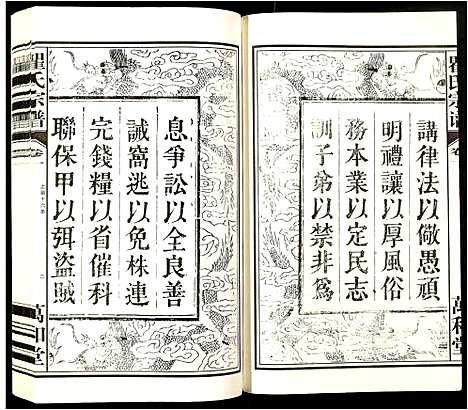 瞿氏宗譜
卷
講律法以儆愚頑
明禮讓以厚風俗
務本業以定民志
訓子弟以禁非為
萬和堂
息爭訟以全良善
誡窩逃以免株連
完錢糧以省催科
聯保甲以弭盜賊
瞿氏宗譜
卷
上諭十六条
萬和堂